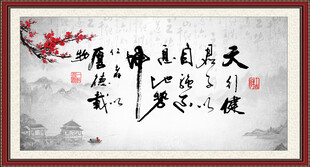 天行健
君子以
自强不
息地势
坤
君子以
厚德载
物